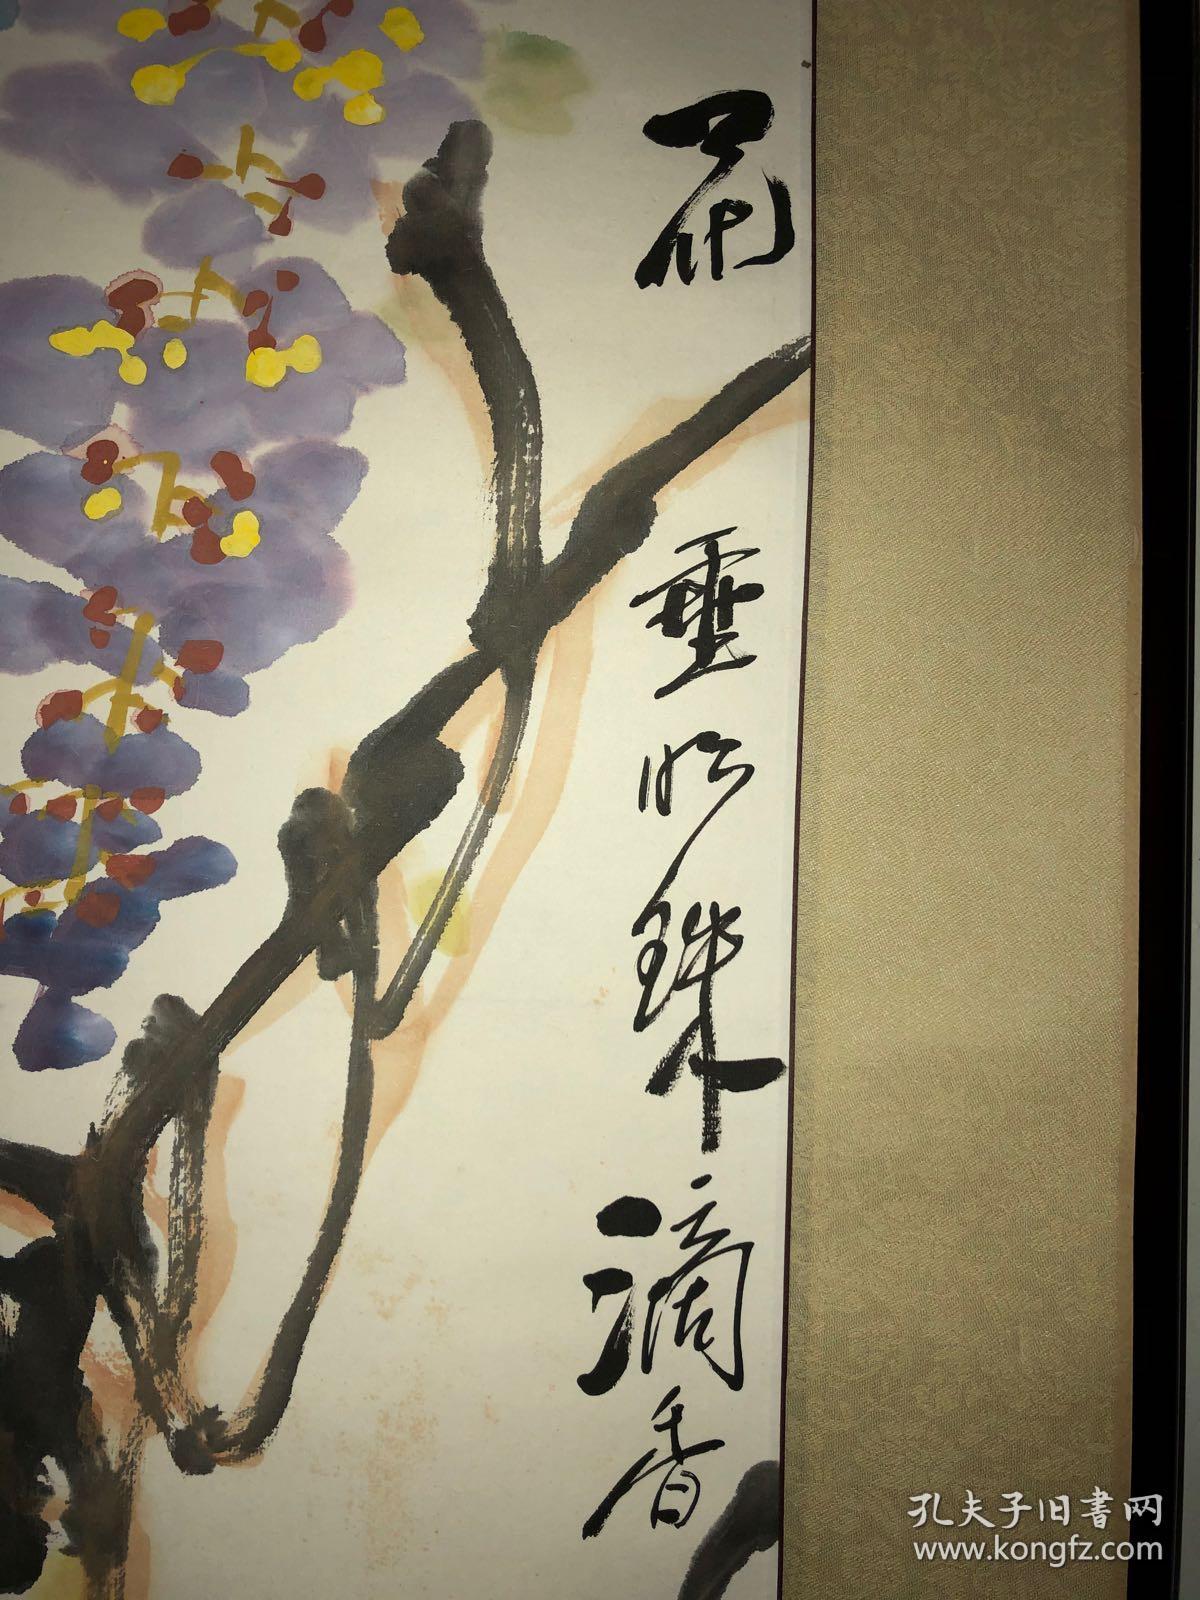 花垂明珠滴香
孔夫子旧書网
www.kongfz.com